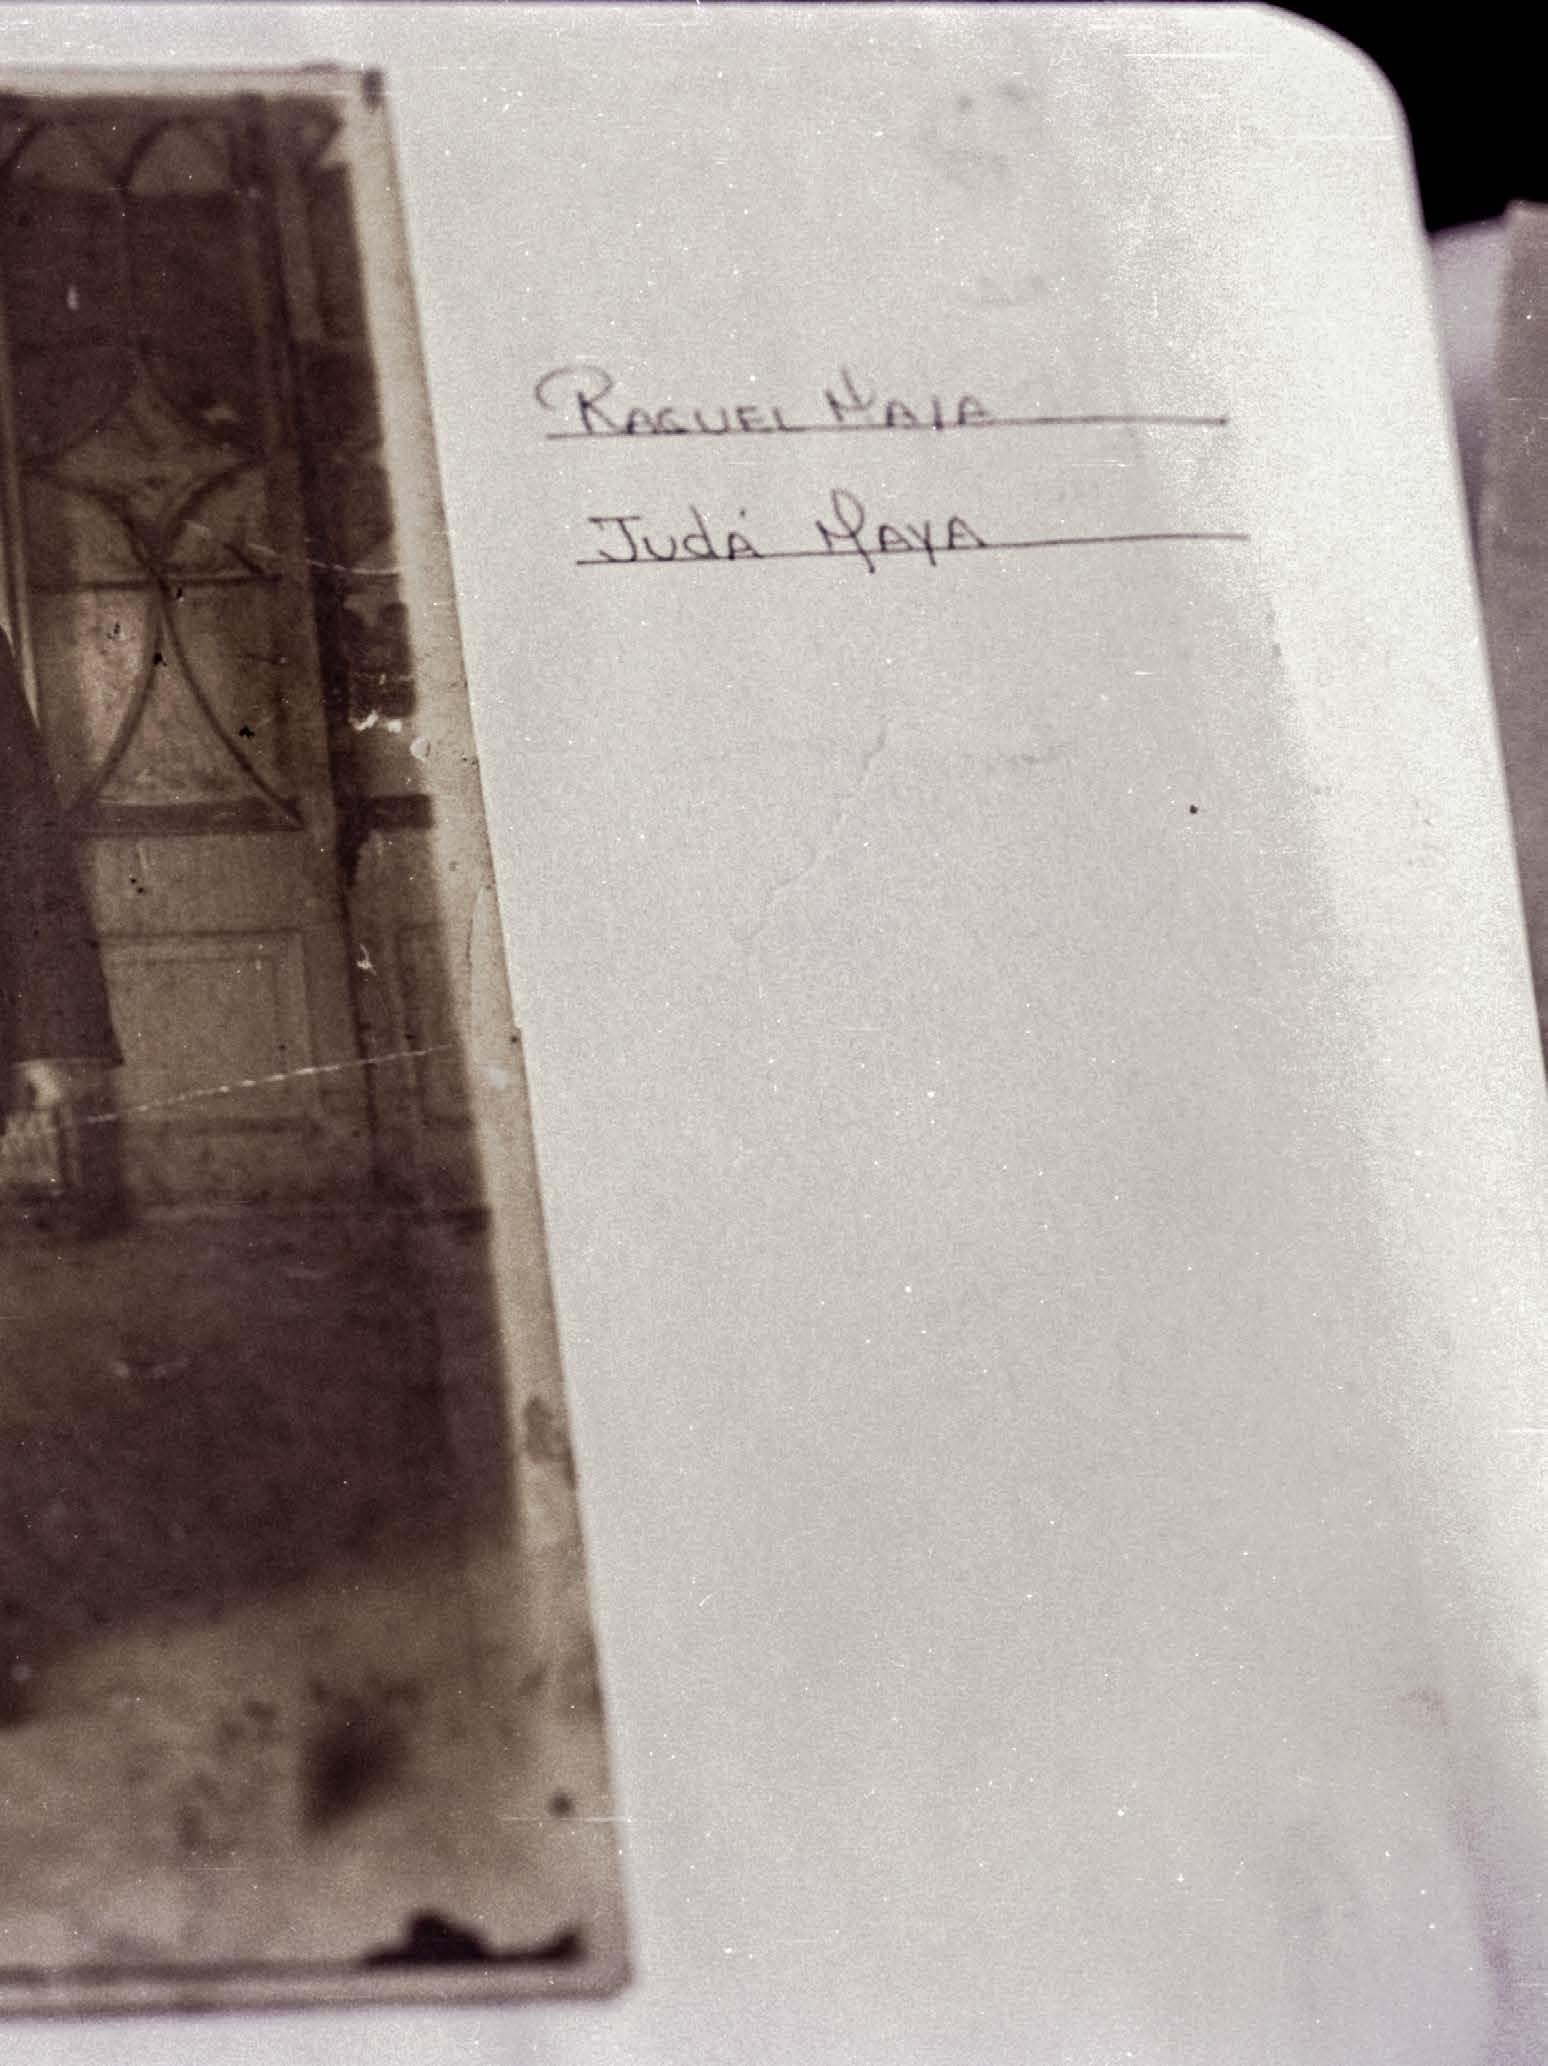 RAQUEL MAIA
JUdÁ MAYA